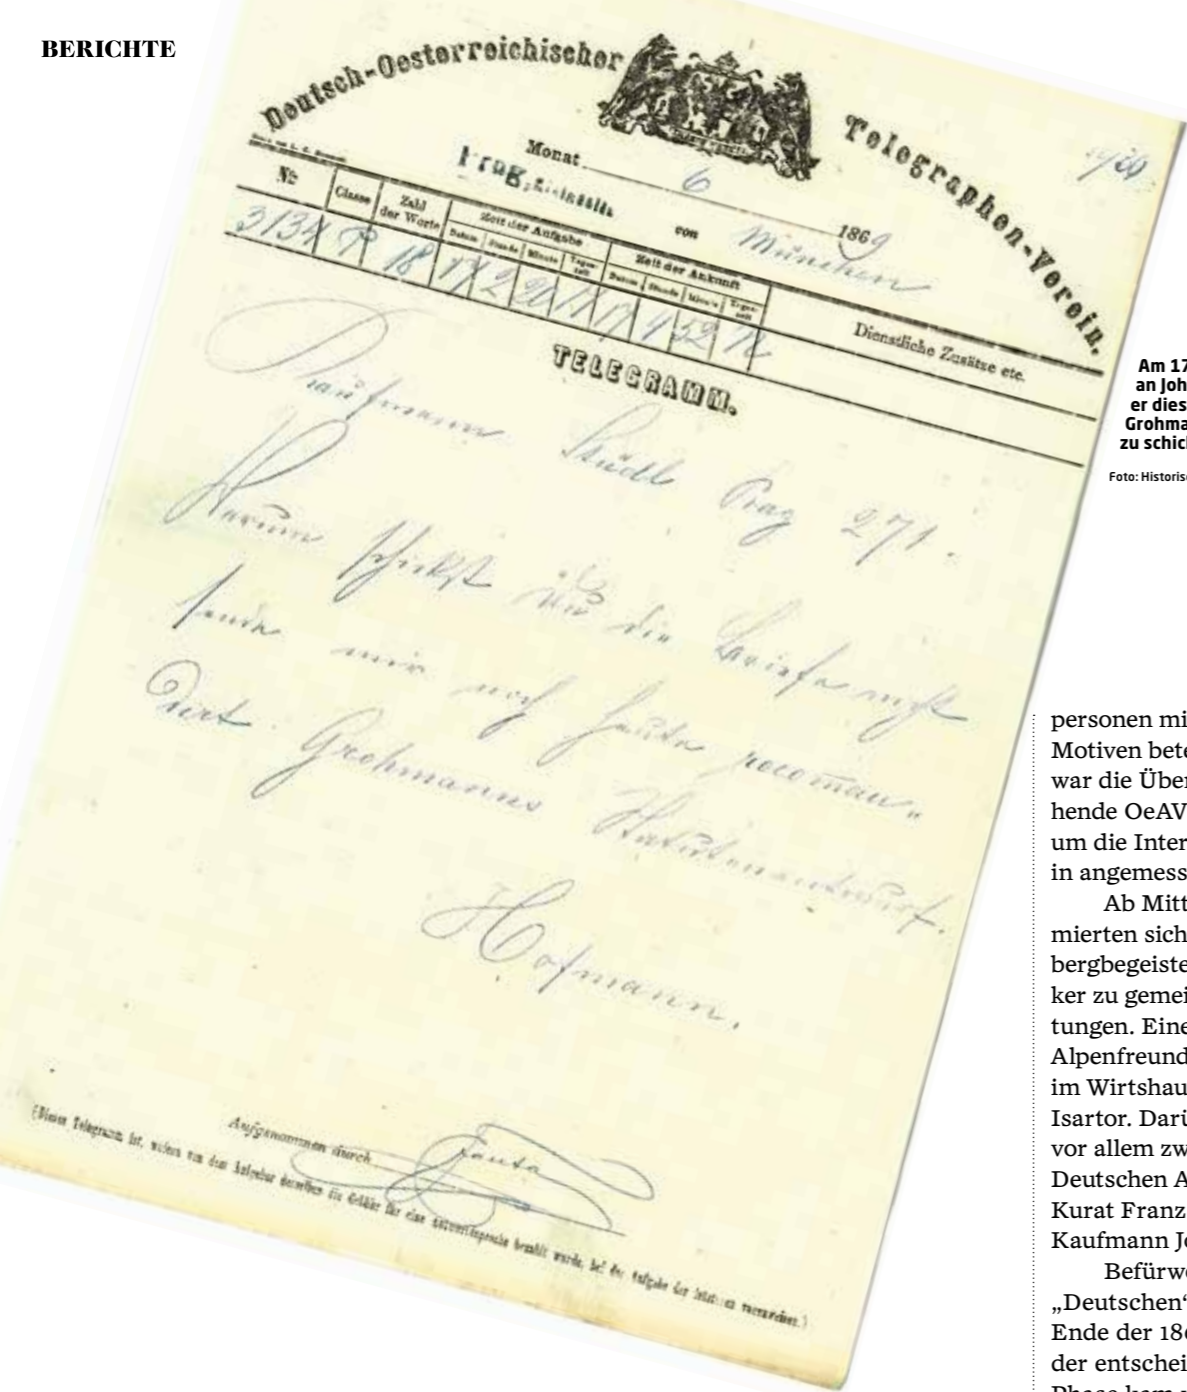 BERICHTE
Deutsch-Oesterreichischer Telegraphen-Verein.
Monat 6 1869
Prag,
von München
No Classe Zahl der Worte Zeit der Aufgabe Zeit der Ankunft Dienstliche Zusätze etc.
Datum Stunde Minute Tageszeit Datum Stunde Minute Tageszeit
3134 P 18 17 2 20 17 4 52 N
TELEGRAMM.
Kaufmann Stüdl Prag 271.
Warum schickst du die Briefe nicht
sende mir noch heute recoman„
dirt Grohmanns Statutenentwurf.
Hofmann.
Aufgenommen durch
(Dieses Telegramm ist, wofern von dem Aufgeber desselben die Gebühr für eine Antwortdepesche bezahlt wurde, bei der Aufgabe der letzteren vorzuweisen.)
Am 17
an Joh
er dies
Grohma
zu schick
Foto: Historisc
personen mi
Motiven bete
war die Über
hende OeAV
um die Inter
in angemess
Ab Mitt
mierten sich
bergbegeiste
ker zu gemei
tungen. Eine
Alpenfreund
im Wirtshau
Isartor. Darü
vor allem zw
Deutschen A
Kurat Franz
Kaufmann Jo
Befürwo
„Deutschen“
Ende der 186
der entschei
Phase kam